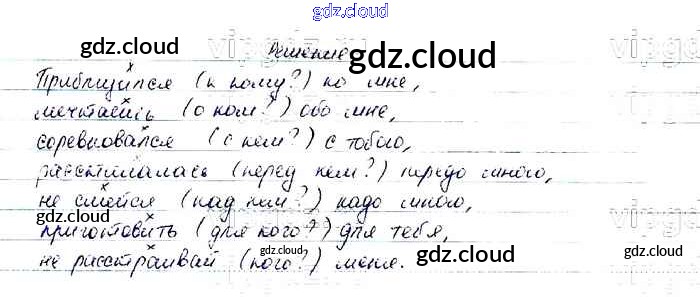 gdz.cloud
Решение
gdz.cloud
gdz.cloud
Приблизился (к кому?) ко мне,
мечтаешь (о ком?) обо мне,
соревновался (с кем?) с тобою,
расстилалась (перед кем?) передо мною,
не смейся (над кем?) надо мною,
приготовить (для кого?) для тебя,
не расстраивай (кого?) меня.
gdz.cloud
gdz.cloud
gdz.cloud